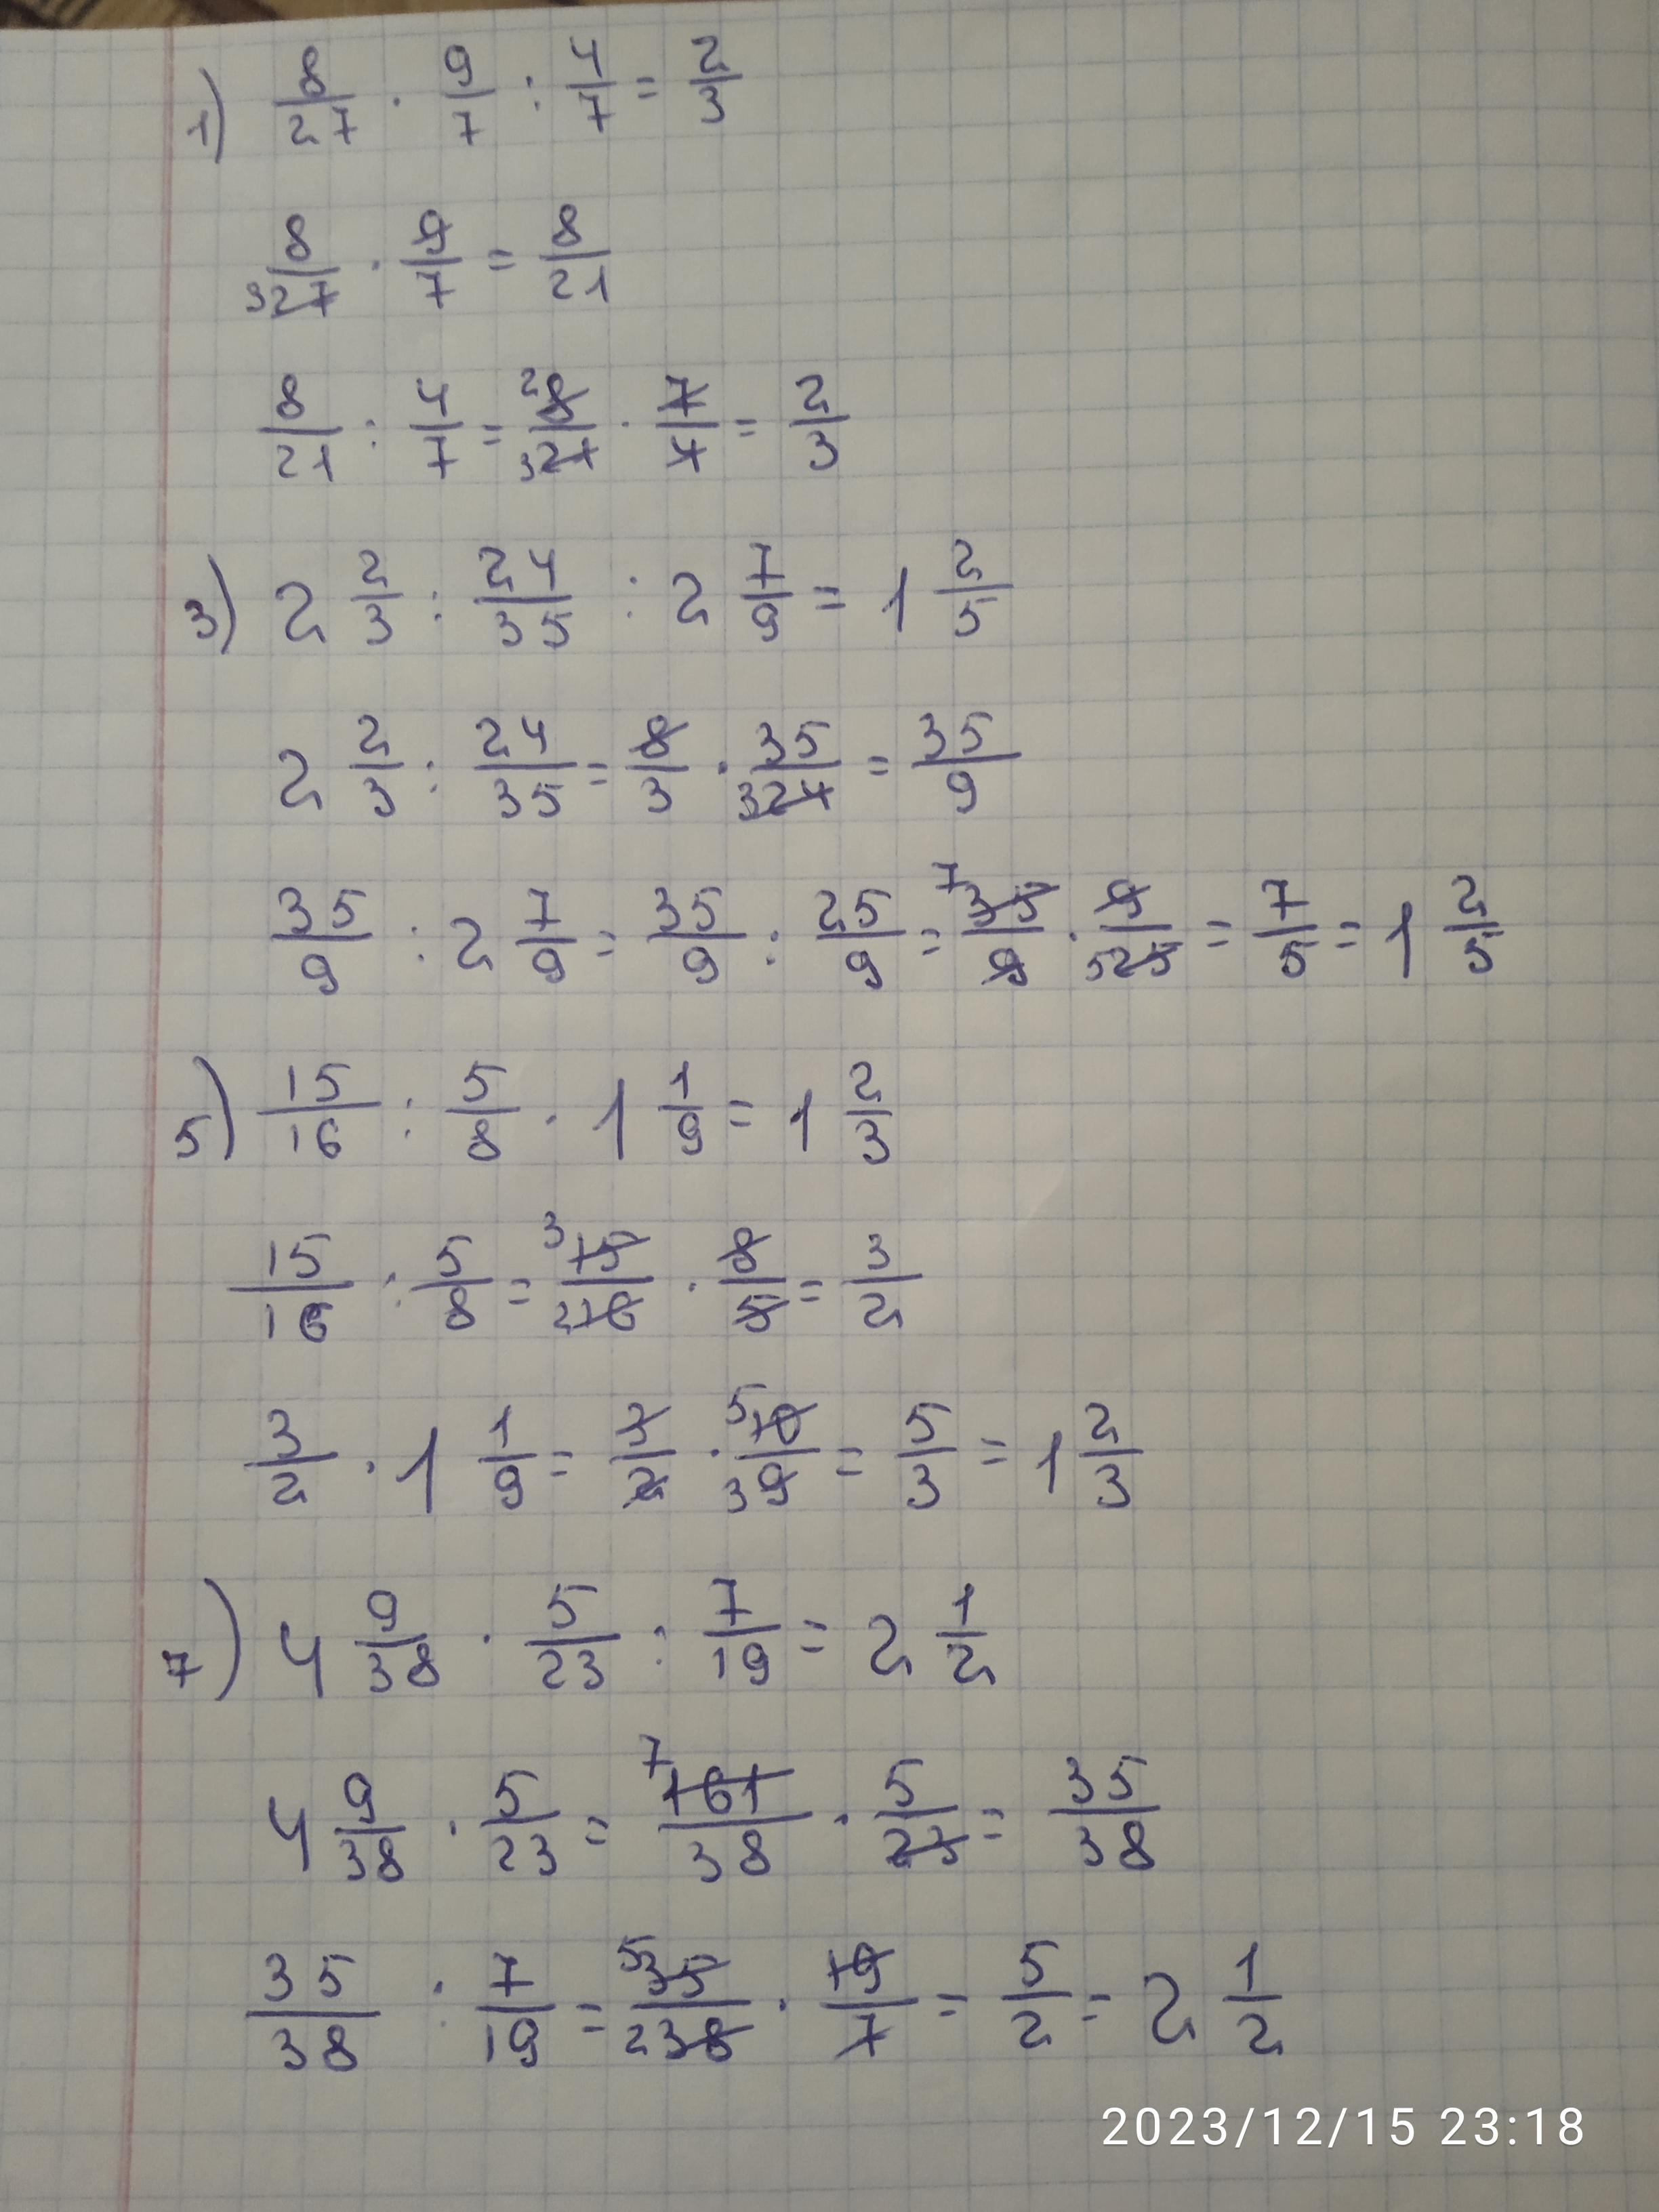 1) 8/27 · 9/7 : 4/7 = 2/3
8/27 3 · 9/7 = 8/21
8/21 : 4/7 = 2 8/21 3 · 7/4 = 2/3
3) 2 2/3 : 24/35 : 2 7/9 = 1 2/5
2 2/3 : 24/35 = 8/3 · 35/24 3 = 35/9
35/9 : 2 7/9 = 35/9 : 25/9 = 7 35/9 · 9/25 5 = 7/5 = 1 2/5
5) 15/16 : 5/8 · 1 1/9 = 1 2/3
15/16 : 5/8 = 3 15/16 2 · 8/5 = 3/2
3/2 · 1 1/9 = 3/2 · 5 10/9 3 = 5/3 = 1 2/3
7) 4 9/38 · 5/23 : 7/19 = 2 1/2
4 9/38 · 5/23 = 7 161/38 · 5/23 = 35/38
35/38 : 7/19 = 5 35/38 2 · 19/7 = 5/2 = 2 1/2
2023/12/15 23:18